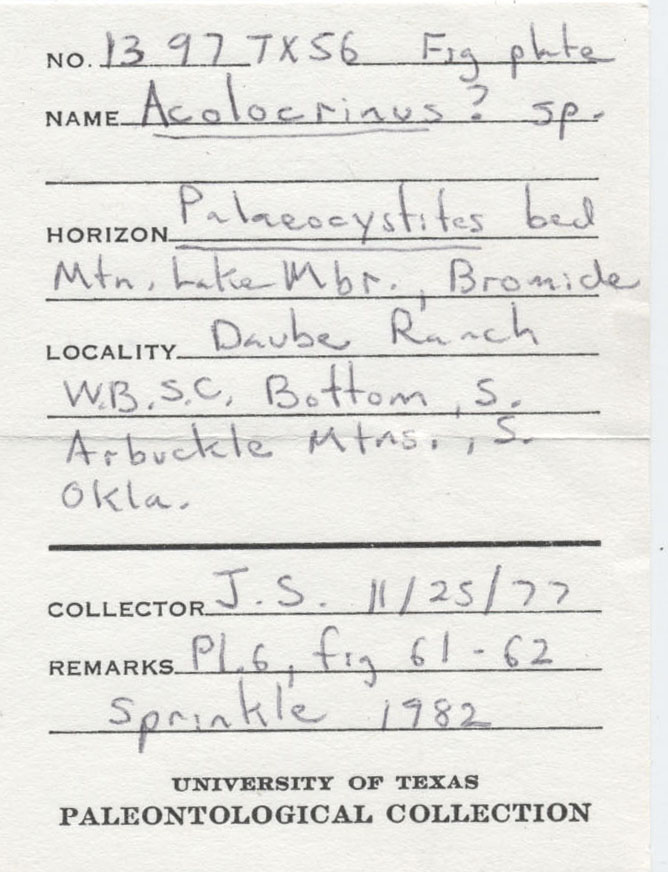 NO. 1397TX56 Fig plate
NAME Acolocrinus? sp.
HORIZON Palaeocystites bed
Mtn. Lake Mbr., Bromide
LOCALITY Daube Ranch
W.B.S.C. Bottom, S.
Arbuckle Mtns., S.
Okla.
COLLECTOR J.S. 11/25/77
REMARKS Pl.6, fig 61-62
Sprinkle 1982
UNIVERSITY OF TEXAS
PALEONTOLOGICAL COLLECTION